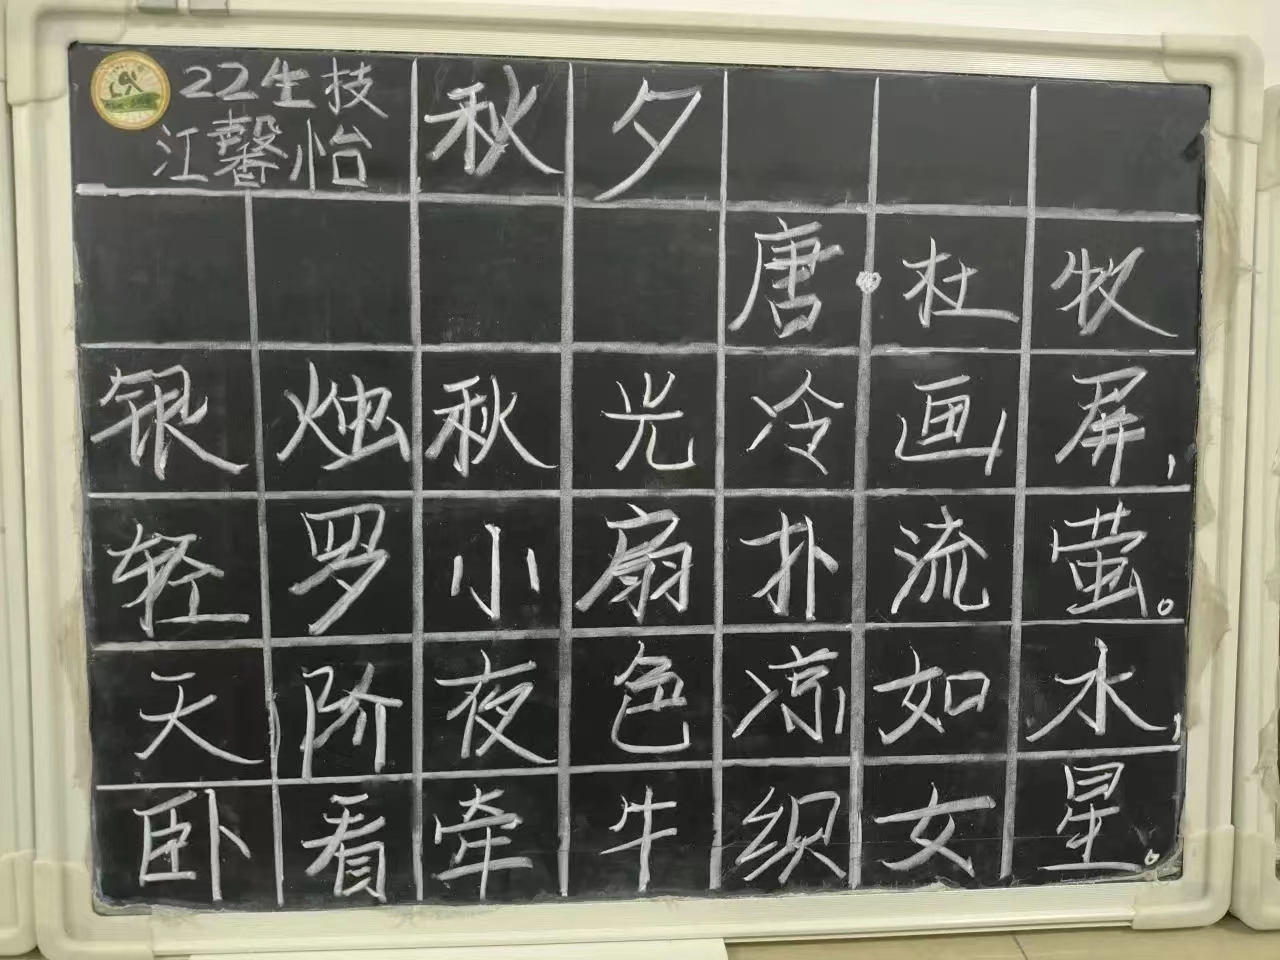 22生技
江馨怡
秋夕
唐·杜牧
银烛秋光冷画屏，
轻罗小扇扑流萤。
天阶夜色凉如水，
卧看牵牛织女星。